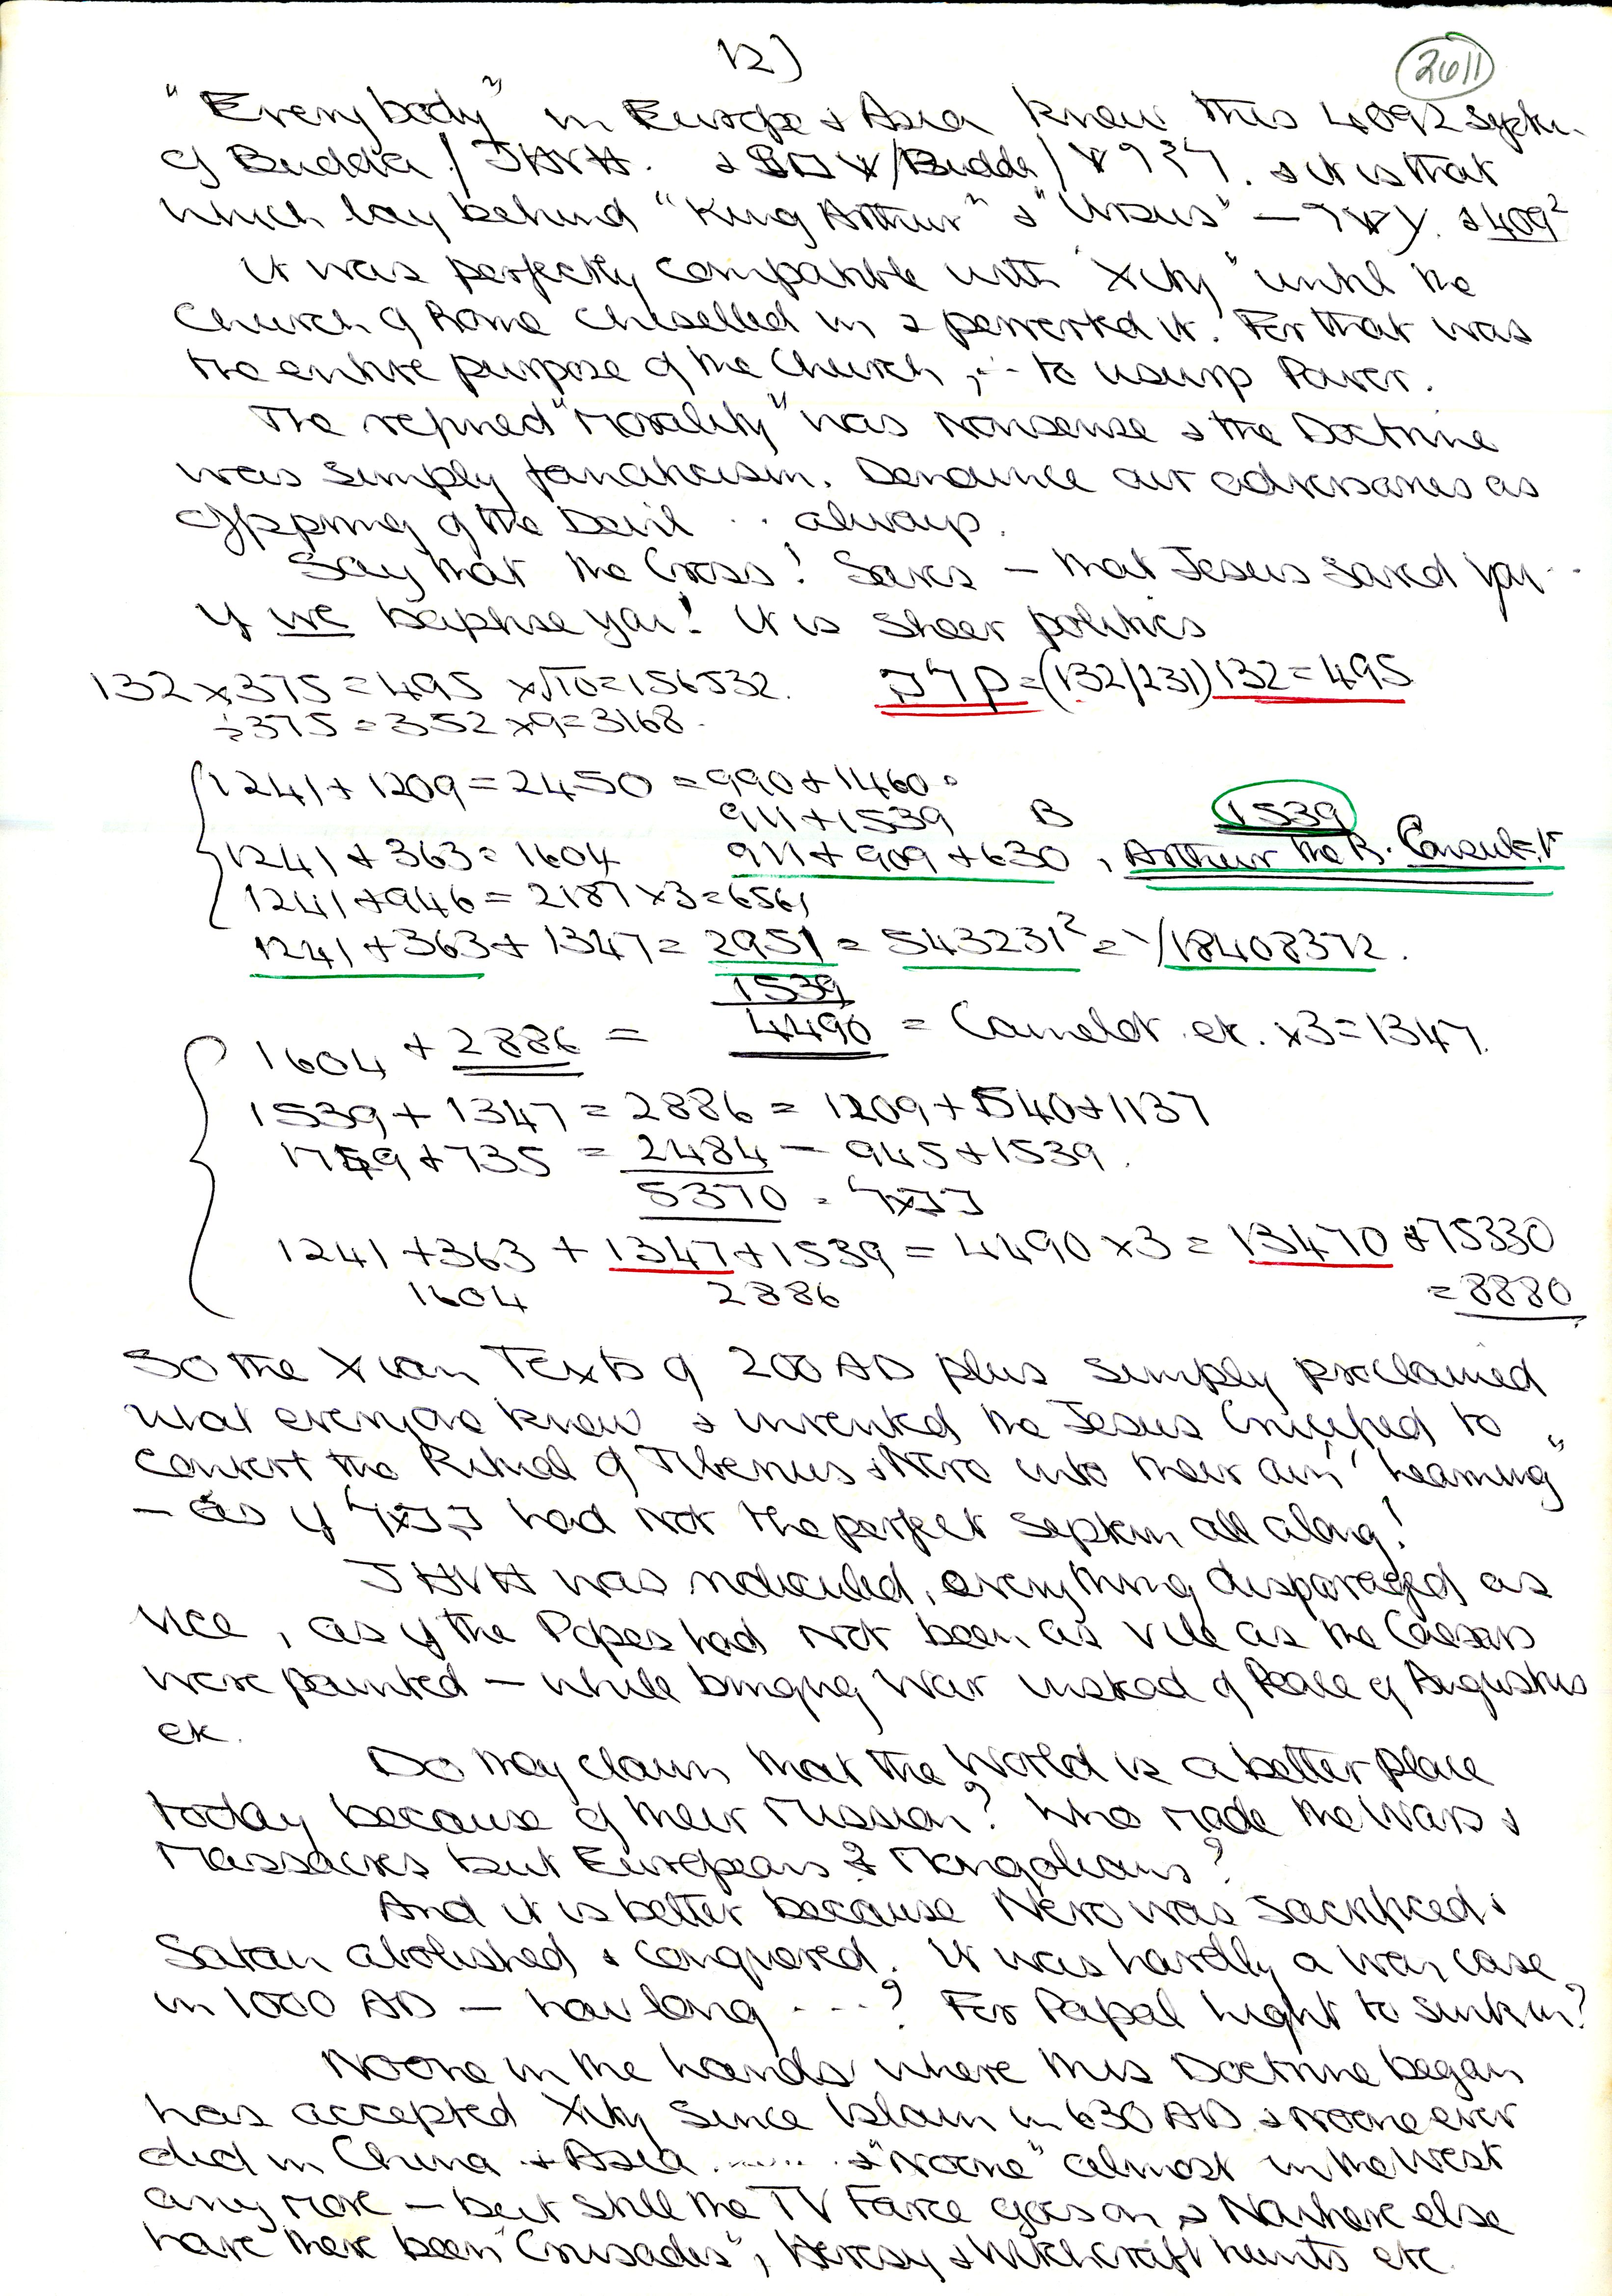 12)
2611
"Everybody" in Europe & Asia knew this 4092 System
of Budda / JHVH. & /Budda/ & it is that
which lay behind "King Arthur" & "Ursus" — & 409²
it was perfectly compatible with "Xity" until the
Church of Rome chiselled in & perverted it. For that was
the entire purpose of the Church, ... to usurp Power.
The refined "Morality" was Nonsense & the Doctrine
was simply fanaticism. Denounce our adversaries as
offspring of the Devil .. always.
Say that the Cross! Saves — that Jesus saved you ..
if we baptise you! it is sheer politics
132 x 375 = 495 x √10 = 156532. (132/231) 132 = 495
÷ 375 = 352 x 9 = 3168.
1241 + 1209 = 2450 = 990 + 1460
911 + 1539 B 1539
1241 + 363 = 1604 911 + 909 + 630, Arthur the B.
1241 + 946 = 2187 x 3 = 6561
1241 + 363 + 1347 = 2951 = 543231² = √18408372.
1539
1604 + 2886 = 4490 = Camelot etc. x 3 = 1347.
1539 + 1347 = 2886 = 1209 + 540 + 1137
1749 + 735 = 2484 — 945 + 1539.
5370 =
1241 + 363 + 1347 + 1539 = 4490 x 3 = 13470 + 75330
1604 2886 = 8880
So the Xian Texts of 200 AD plus simply proclaimed
what everyone knew & invented the Jesus Crucified to
convert the Ritual of Tiberius & Nero into their own "meaning"
— as if had not the perfect System all along!
JHVH was ridiculed, everything disparaged as
vice, as if the Popes had not been as vile as the Caesars
were painted — while bringing War instead of Peace of Augustus
etc.
Do they claim that the World is a better place
today because of their Mission? Who made the Wars &
Massacres but Europeans & Mongolians?
And it is better because Nero was sacrificed &
Satan abolished & conquered. It was hardly a won case
in 1000 AD — how long ...? For Papal light to sink in?
Noone in the lands where this Doctrine began
has accepted Xity since Islam in 630 AD & noone ever
did in China & Asia ...... & "Noone" almost in the West
any more — but still the TV Farce goes on & Nowhere else
have there been "Crusades", Heresy & Witchcraft hunts etc.